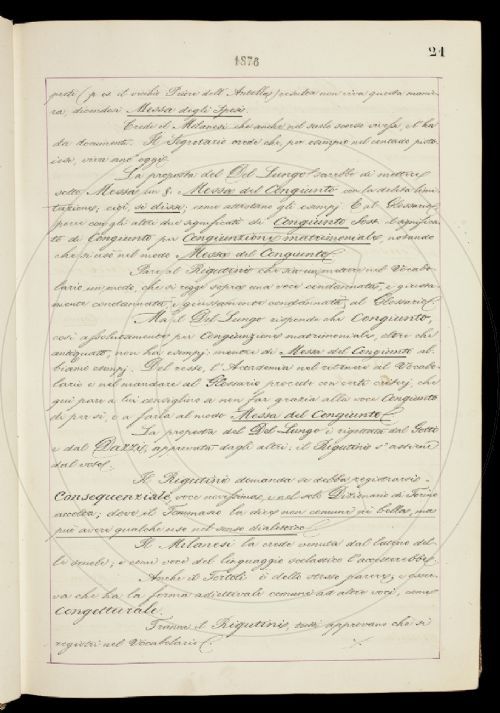 1876
21
perti (p. es. il vecchio Priore dell'Antella) resulta non viva questa manie-
ra, dicendosi Messa degli Sposi.
Crede il Milanesi che anche nel secolo scorso vivesse, e l'ha
da documenti. Il Segretario crede che, per esempio nel contado pisto-
iese, viva anc' oggi.
La proposta del Del Lungo sarebbe di mettere
sotto Messa un §. Messa del Congiunto con la debita limi-
tazione, cioè, si disse; come attestano gli esempj. E al Glossario,
porre con gli altri due significati di Congiunto Sost. il significa-
to di Congiunto per Congiunzione matrimoniale, notando
che si usò nel modo Messa del Congiunto.
Pare al Rigutini che sia un mettere nel Vocabo-
lario un modo, che si regge sopra una voce condannata, e giusta-
mente condannata, e giustamente condannata, al Glossario.
Ma il Del Lungo risponde che Congiunto,
così assolutamente per Congiunzione matrimoniale, oltre che
antiquato, non ha esempj: mentre di Messa del Congiunto ab-
biamo esempj. Del resto, l'Accademia nel ritenere al Vocabo-
lario e nel mandare al Glossario procede con certi criterj, che
qui pare a lui consigliino a non far grazia alla voce Congiunto
di per sè, e a farla al modo Messa del Congiunto.
La proposta del Del Lungo è rigettata dal Gotti
e dal Dazzi, approvata dagli altri: il Rigutini s'astiene
dal voto.
Il Rigutini domanda se debba registrarsi
Consequenziale, voce novissima, e nel solo Dizionario di Torino
accolta; dove il Tommaseo la dice non comune nè bella, ma
può avere qualche uso nel senso dialettico.
Il Milanesi la crede venuta dal latino del-
le scuole, e come voce del linguaggio scolastico l'accetterebbe.
Anche il Tortoli è dello stesso parere, e osser-
va che ha la forma adiettivale comune ad altre voci, come
Congetturale.
Tranne il Rigutini, tutti approvano che si
registri nel Vocabolario.